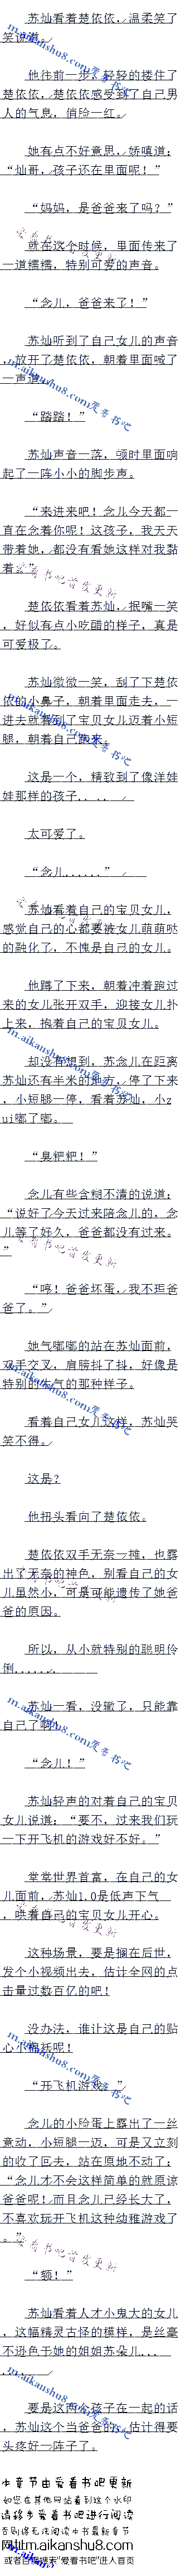 苏灿看着楚依依，温柔笑了
笑说道。
他往前一步，轻轻的搂住了
楚依依，楚依依感受到了自己男
人的气息，俏脸一红。
她有点不好意思，娇嗔道；
“灿哥，孩子还在里面呢！”
“妈妈，是爸爸来了吗？”
就在这个时候，里面传来了
一道糯糯，特别可爱的声音。
“念儿，爸爸来了！”
苏灿听到了自己女儿的声音
，放开了楚依依，朝着里面喊了
一声道。
“踏踏！”
苏灿声音一落，顿时里面响
起了一阵小小的脚步声。
“来进来吧！念儿今天都一
直在念着你呢！这孩子，我天天
带着她，都没有看她这样对我黏
着。”
楚依依看着苏灿，抿嘴一笑
，好似有点小吃醋的样子，真是
可爱极了。
苏灿微微一笑，刮了下楚依
依的小鼻子，朝着里面走去，一
进去就看到了宝贝女儿迈着小短
腿，朝着自己跑来。
这是一个，精致到了像洋娃
娃那样的孩子....
太可爱了。
“念儿......”
苏灿看着自己的宝贝女儿，
感觉自己的心都要被女儿萌萌哒
的融化了，不愧是自己的女儿。
他蹲了下来，朝着冲着跑过
来的女儿张开双手，迎接女儿扑
上来，抱着自己的宝贝女儿。
却没有想到，苏念儿在距离
苏灿还有半米的地方，停了下来
，小短腿一停，看着苏灿，小z
ui嘟了嘟。
“臭粑粑！”
念儿有些含糊不清的说道；
“说好了今天过来陪念儿的，念
儿等了好久，爸爸都没有过来。
”
“哼！爸爸坏蛋，我不理爸
爸了。”
她气嘟嘟的站在苏灿面前，
双手交叉，肩膀抖了抖，好像是
特别的生气的那种样子。
看着自己女儿这样，苏灿哭
笑不得。
这是？
他扭头看向了楚依依。
楚依依双手无奈一摊，也露
出了无奈的神色，别看自己的女
儿虽然小，可是可能遗传了她爸
爸的原因。
所以，从小就特别的聪明伶
俐......
苏灿一看，没辙了，只能靠
自己了啊！
“念儿！”
苏灿轻声的对着自己的宝贝
女儿说道；“要不，过来我们玩
一下开飞机的游戏好不好。”
堂堂世界首富，在自己的女
儿面前，苏灿1.0是低声下气
，哄着自己的宝贝女儿开心。
这种场景，要是搁在后世，
发个小视频出去，估计全网的点
击量过数百亿的吧！
没办法，谁让这是自己的贴
心小棉袄呢！
“开飞机游戏。”
念儿的小脸蛋上露出了一丝
意动，小短腿一迈，可是又立刻
的收了回去，站在原地不动了；
“念儿才不会这样简单的就原谅
爸爸呢！而且念儿己经长大了，
不喜欢玩开飞机这种幼稚游戏了
。”
“额！”
苏灿看着人才小鬼大的女儿
，这幅精灵古怪的模样，是丝毫
不逊色于她的姐姐苏朵儿...
...
要是这两个孩子在一起的话
，苏灿这个当爸爸的，估计得要
头疼好一阵子了。
本章节由爱看书吧更新
如您在其他网站看到这个水印
请移步爱看书吧进行阅读
否则将无法阅读本书最新章节
网址m.aikanshu8.com
或者百度搜索“爱看书吧”进入首页